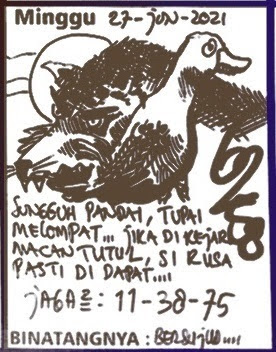 Minggu 27-JUN-2021
SUNGGUH PANDAI, TUPAI
MELOMPAT... JIKA DI KEJAR
MACAN TUTUL, SI RUSA
PASTI DI DAPAT....
JAGA2 : 11-38-75
BINATANGNYA : BERSUJUD....